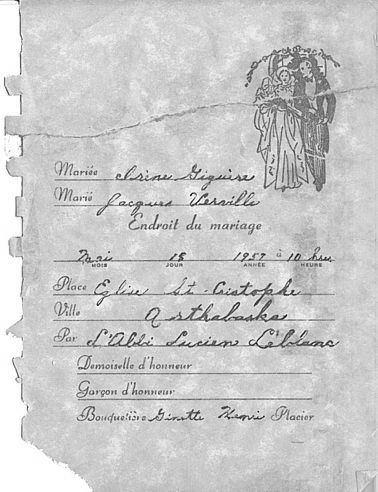 Mariée Irène Giguère
Marié Jacques Verville
Endroit du mariage
Mai 18 1957 à 10 hres
MOIS JOUR ANNÉE HEURE
Place Eglise St-Cristophe
Ville Arthabaska
Par L'Abbé Lucien Leblanc
Demoiselle d'honneur
Garçon d'honneur
Bouquetière Ginette Placier